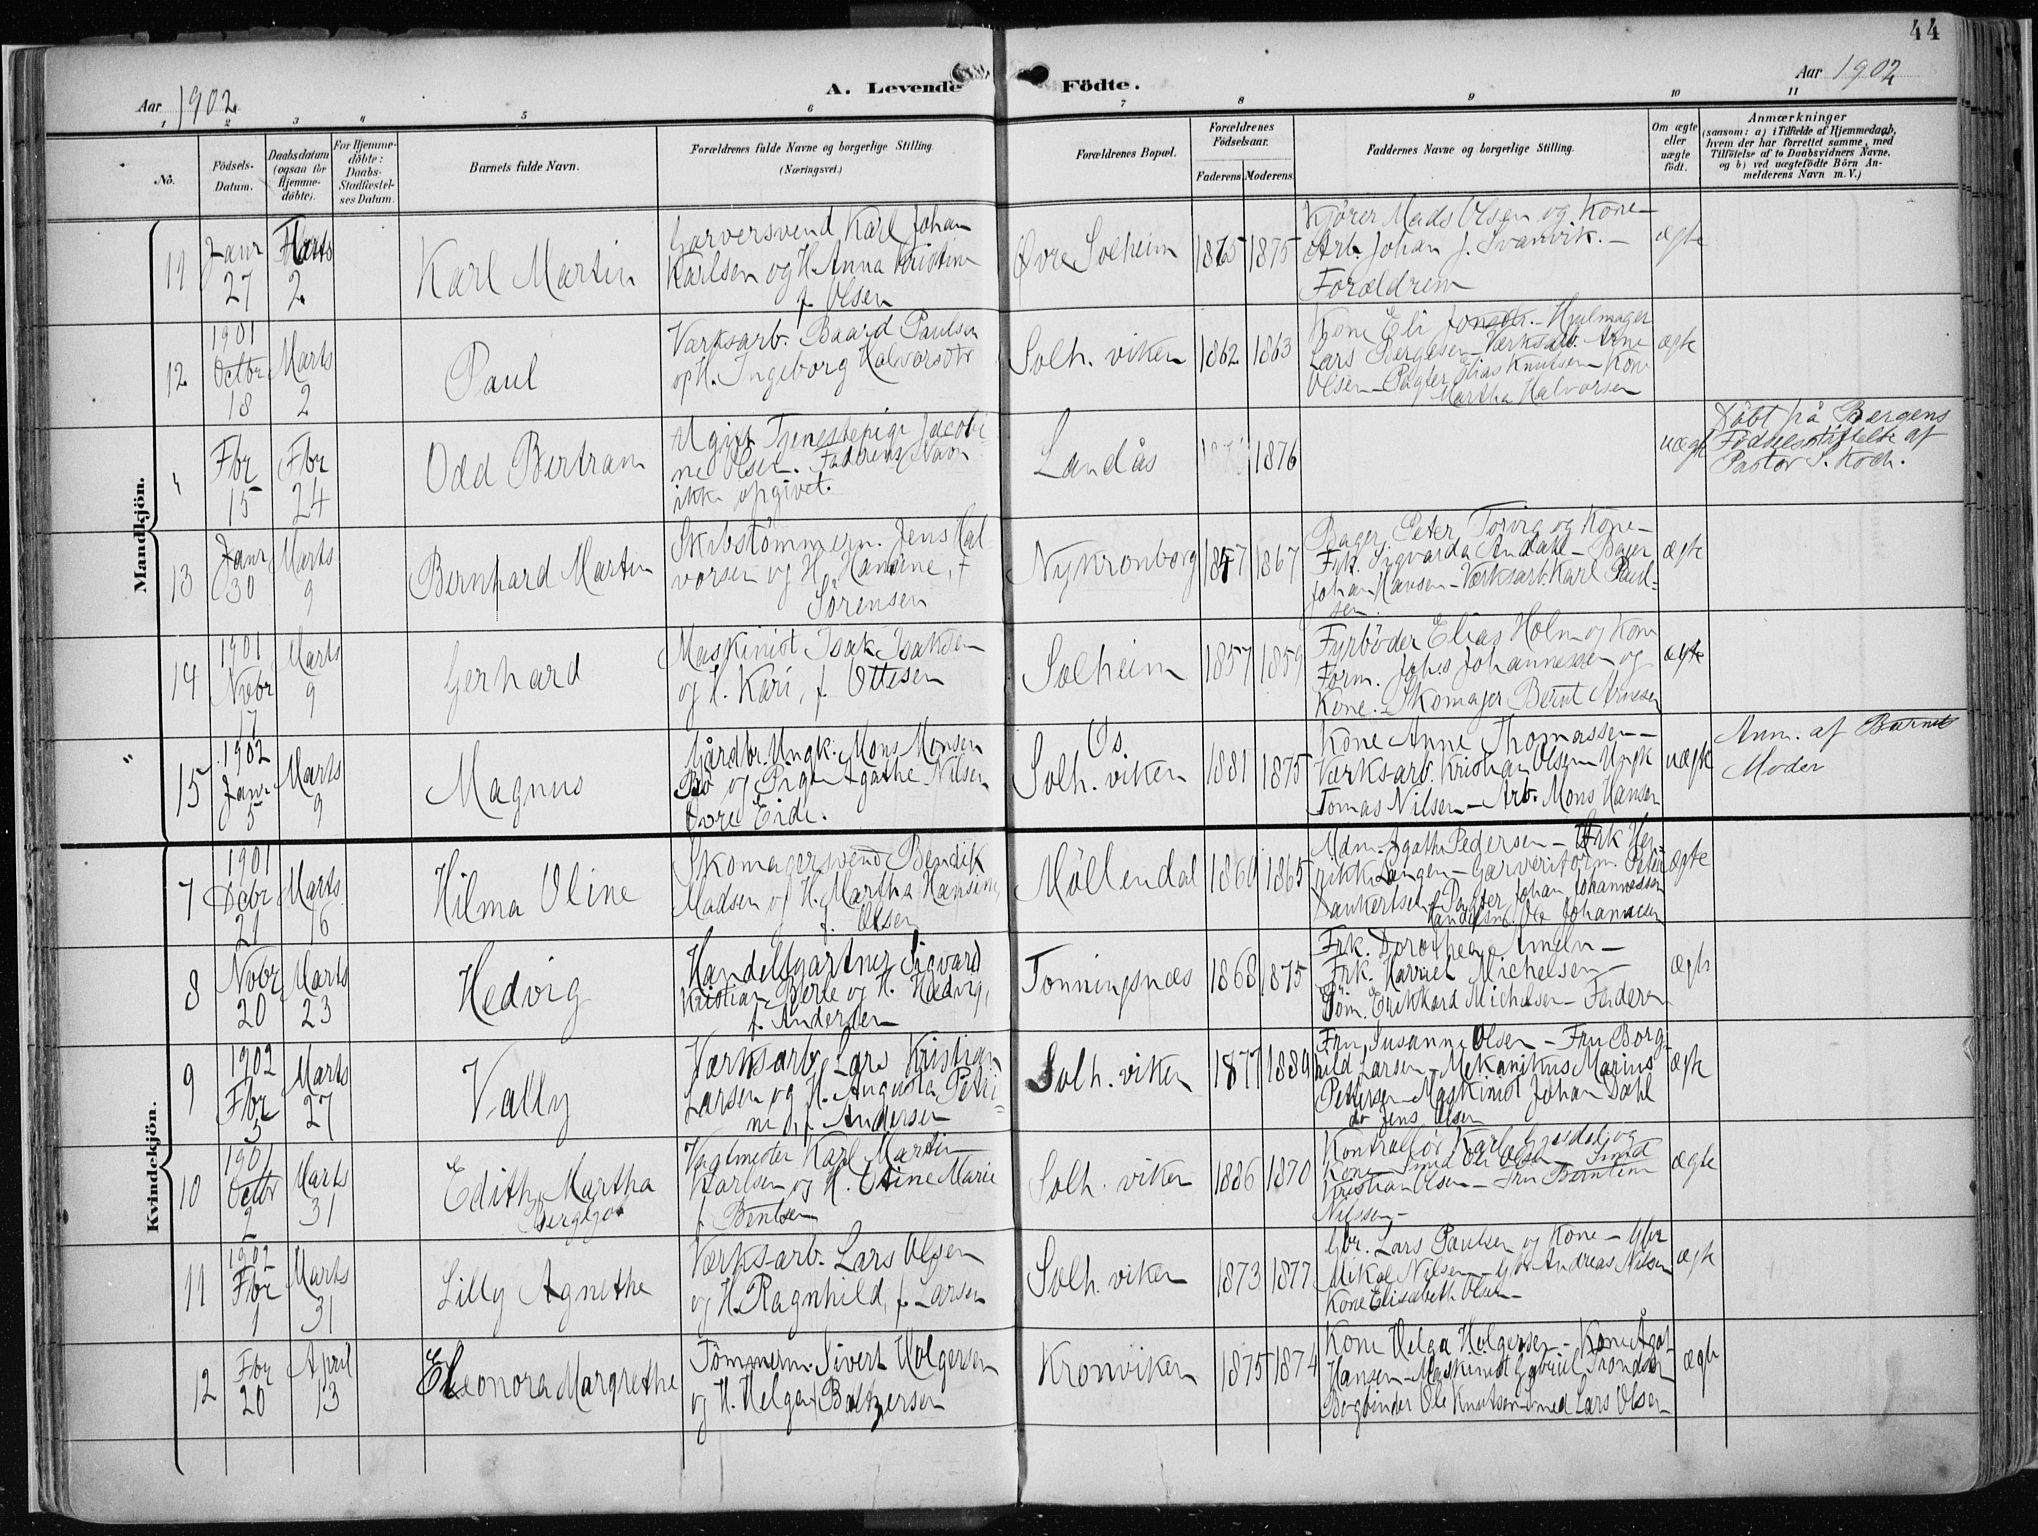 44
Aar 1902
A. Levende Födte.
Aar 1902
1 2 3 4 5 6 7 8 9 10 11
No.
Födsels-
Datum.
Daabsdatum
(ogsaa for
Hjemme-
döbte).
For Hjemme-
döbte:
Daabs-
Stadfæstel-
ses Datum.
Barnets fulde Navn.
Forældrenes fulde Navne og borgerlige Stilling.
(Næringsvei.)
Forældrenes Bopæl.
Forældrenes
Födselsaar.
Faderens. Moderens.
Faddernes Navne og borgerlige Stilling.
Om ægte
eller
uægte
född.
Anmærkninger
(saasom: a) i Tilfælde af Hjemmedaab,
hvem der har forrettet samme, med
Tilföielse af to Daabsvidners Navne,
og b) ved uægtefödte Börn An-
melderens Navn m. V.)
Mandkjön.
11
Janr
27
Marts
2
Karl Martin
Garversvend Karl Johan
Karlsen og H. Anna Kristine
f. Olsen
Øvre Solheim
1875
1875
Kjører Mads Olsen og Kone –
Arb. Johan J. Svanvik. –
Forældrene
ægte
12
1901
Octbr
18
Marts
2
Paul
Værksarb. Baard Paulsen
og H. Ingeborg Halvorsdtr
Solh. viken
1862
1863
Kone Eli Jonsdr. – Hjulmager
Lars Børgesen – Værksarb. Arne
Olsen – Pagter Elias Knutsen – Kone
Martha Halvorsen
ægte
"
Fbr
15
Fbr
24
Odd Bertram
Ugift Tjenestepige Jacobi-
ne Olsen. Faderens Navn
ikke opgivet.
Landås
1876
uægte
Døbt på Bergens
Fødselsstiftelse af
Pastor S. Koch.
13
Janr
30
Marts
9
Bernhard Martin
Skibstømmerm. Jens Hal
vorsen og H. Hansine, f
Sørensen
Nykronborg
1867
Bager Peter Torvig og Kone –
Frk. Sigvarda Andahl – Bager
Johan Hansen – Værksarb. Karl Paul-
sen.
ægte
14
1901
Novbr
17
Marts
9
Gerhard
Maskinist Isak Isaksen
og H. Kari, f. Ottesen
Solheim
1857
1859
Fyrbøder Elias Holm og Kone
Form. Johs. Johannessen og
Kone. Skomager Bernt Arnesen
ægte
"
15
1902
Janr
5
Marts
9
Magnus
Gårdbr. Ungk. Mons Monsen
Bø og Pige Agathe Nilsen
Øvre Eide.
Os.
Solh. viken
1881
1875
Kone Anne Thomassen –
Værksarb. Kristian Olsen – Ungk
Tomas Nilsen – Arb. Mons Hansen
uægte
Anm. af Barnets
Moder
Kvindekjön.
7
1901
Decbr
21
Marts
16
Hilma Oline
Skomagersvend Bendik
Madsen og H. Martha Hansine,
f. Olsen
Möllendal
1860
1865
Mdm. Agathe Pedersen – Frk Hen
rikke Langen – Garveriform. Peter
Dankertsen – Pagter Johan Johannessen
Handelsm. Ole Johannesen
ægte
8
Novbr
20
Marts
23
Hedvig
Handelsgartner Sigvard
Kristian Berle og H. Hedvig,
f. Andersen
Tonningsnæs
1868
1875
Frk. Dorothea Ameln –
Frk. Harriet Michelsen –
Erikkard Michelsen – Faderen
ægte
9
1902
Fbr
3
Marts
27
Vally
Værksarb. Lars Kristian
Larsen og H. Augusta Petri-
ne, f. Andersen
Solh. viken
1877
1880
Fru Susanne Olsen – Fru Borg-
hild Larsen – Mekanikus Marius
Pettersen – Maskinist Johan Dahl
do Jens Olsen
ægte
10
1901
Octbr
2
Marts
31
Edith Martha
Bergljot
Vagtmester Karl Martin
Karlsen og H. Oline Marie
f. Bentsen
Solh. viken
1870
Kontrollør Karl Grødal og
Kone – Smed Ole Olsen – Smed
Kristian Olsen – Fru Berntine
Nilssen –
ægte
11
1902
Fbr
1
Marts
31
Lilly Agnethe
Værksarb. Lars Olsen
og H. Ragnhild, f. Larsen
Solh. viken
1873
1877
Gbr. Lars Paulsen og Kone – Gbr
Mikal Nilsen – Gbr Andreas Nilsen
Kone Elisabeth Olsen –
ægte
12
Fbr
20
April
13
Eleonora Margrethe
Tömmerm. Sivert Holgersen
og H. Helga f Baltzersen
Kronviken
1875
1874
Kone Helga Holgersen – Kone Agot
Hansen – Maskinist Gabriel Trondsen
Bogbinder Ole Knutsen – Smed Lars Olsen
ægte